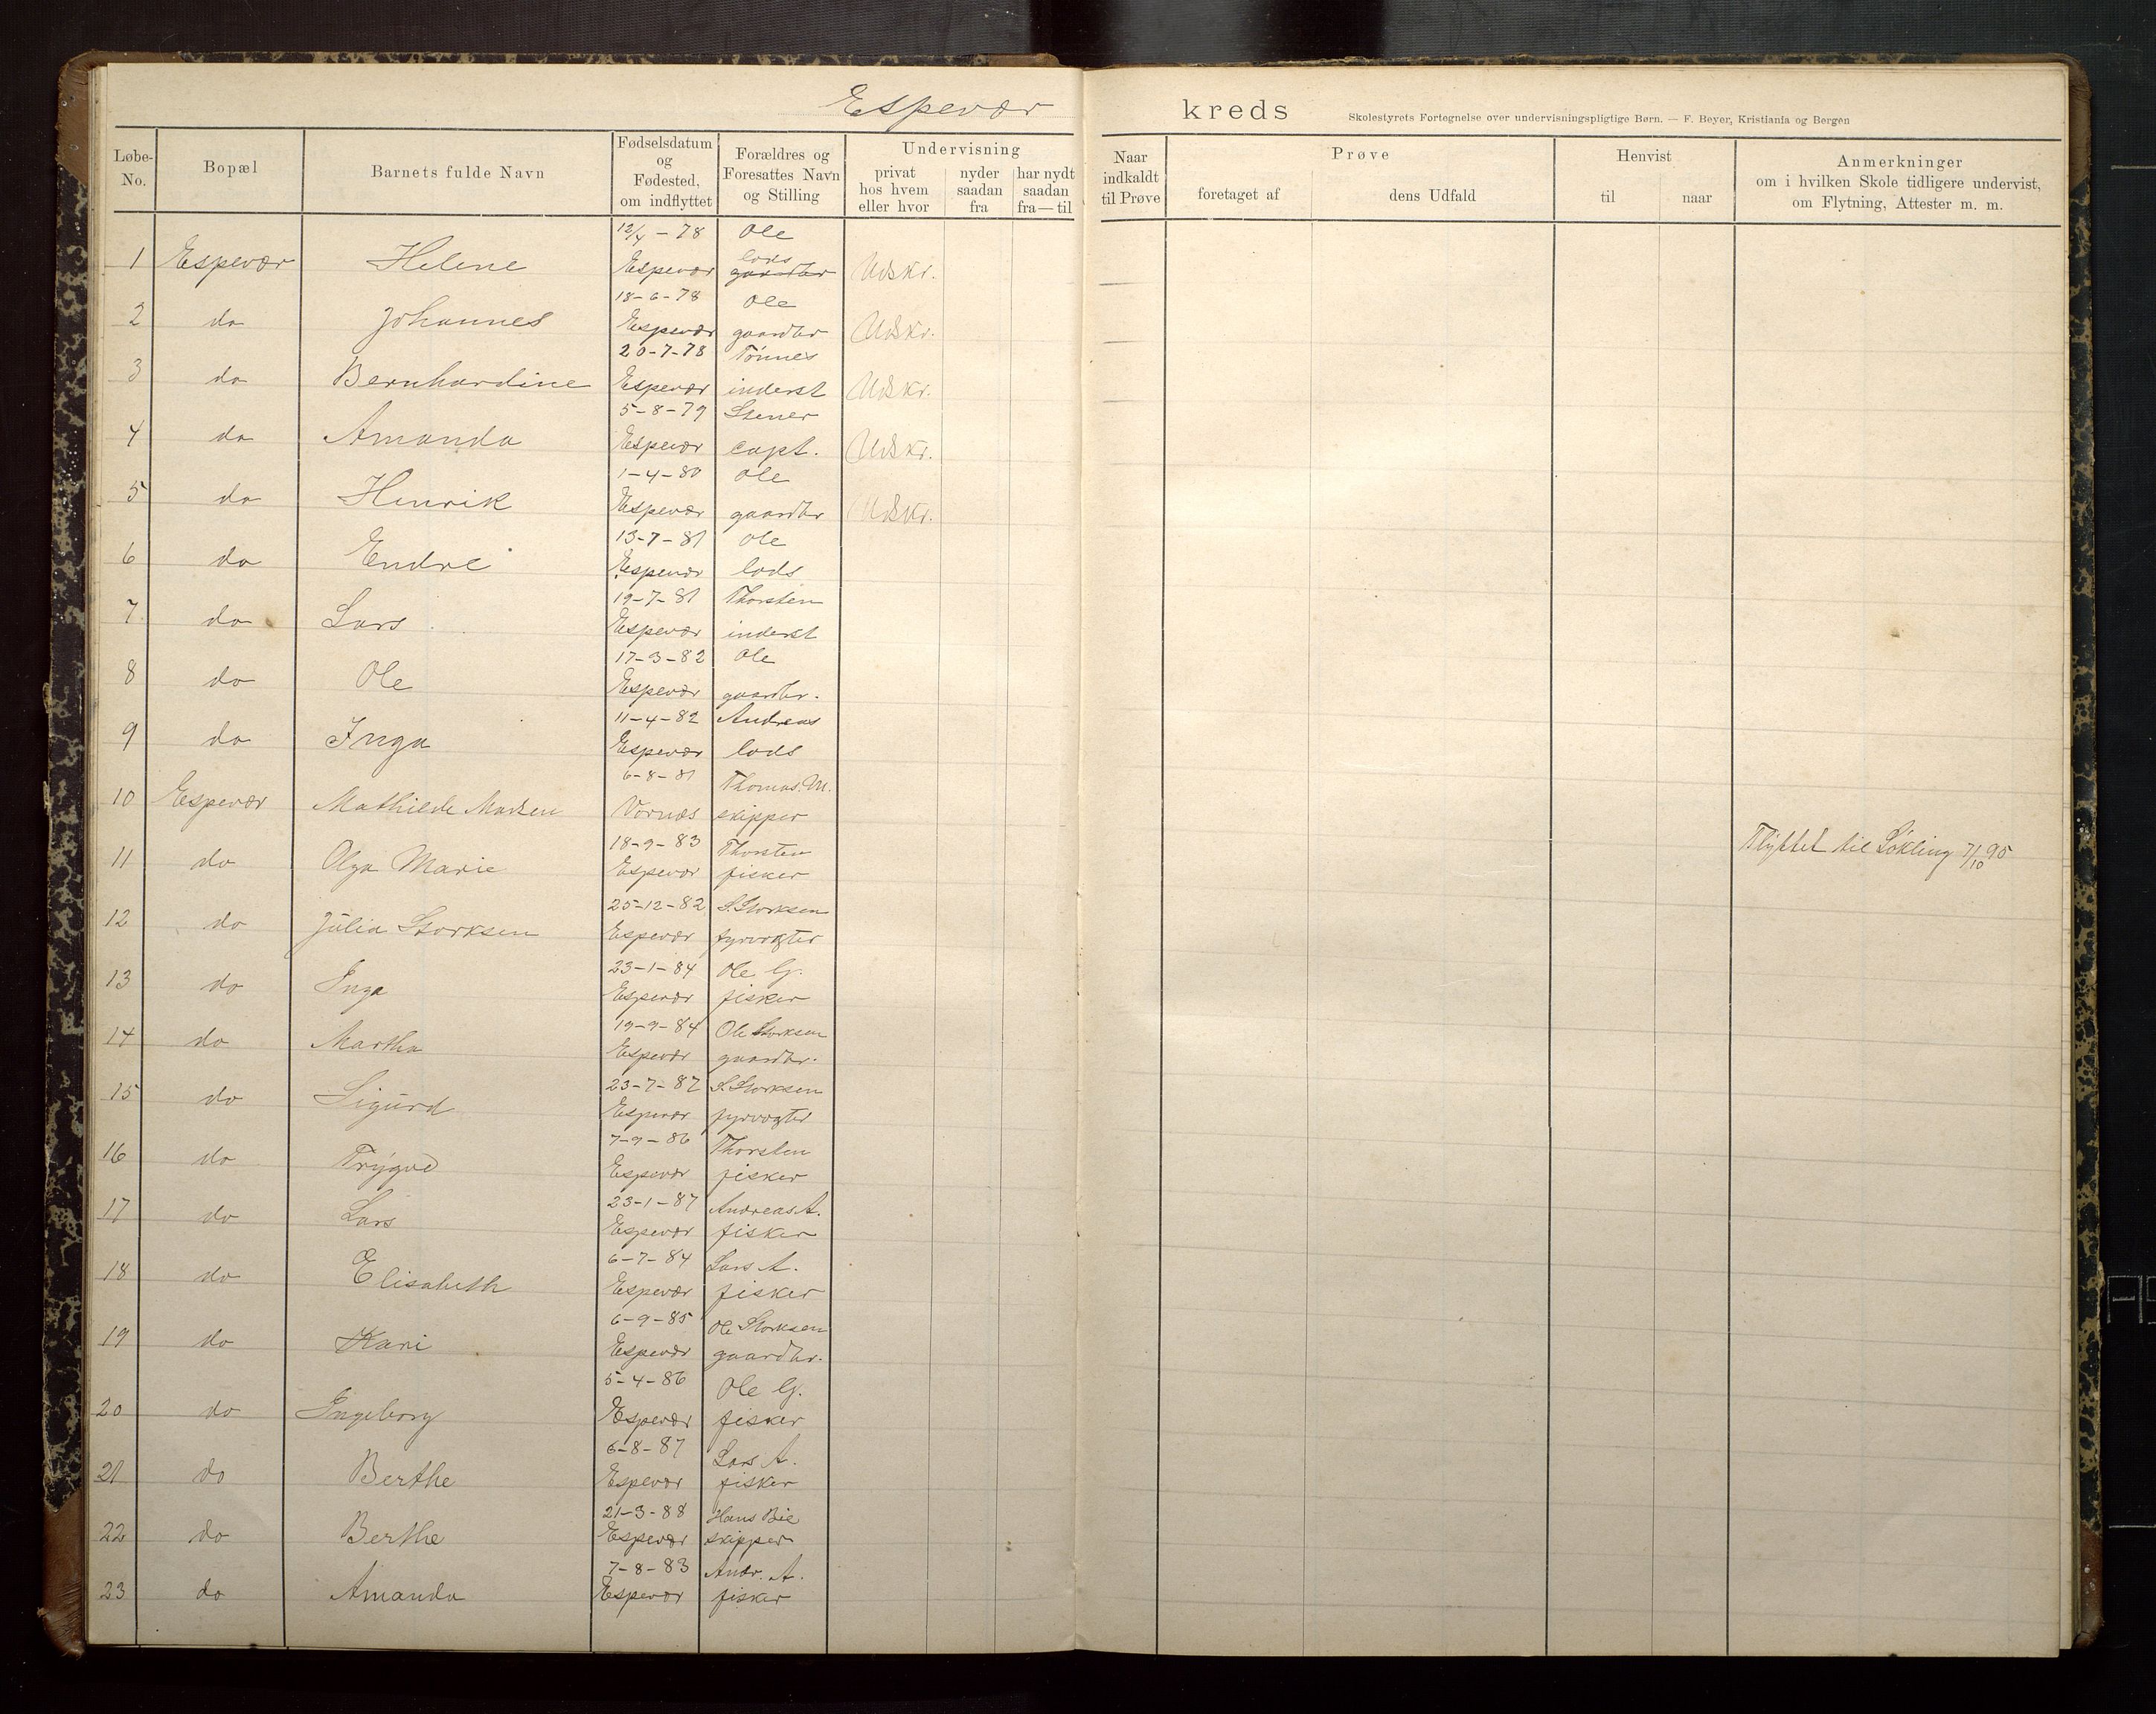 Espevær kreds
Skolestyrets Fortegnelse over undervisningspligtige Børn. — F. Beyer, Kristiania og Bergen
Løbe-No. Bopæl Barnets fulde Navn Fødselsdatum og Fødested, om indflyttet Forældres og Foresattes Navn og Stilling Undervisning privat hos hvem eller hvor nyder saadan fra har nydt saadan fra—til Naar indkaldt til Prøve Prøve foretaget af dens Udfald Henvist til naar Anmerkninger om i hvilken Skole tidligere undervist, om Flytning, Attester m. m.
12/4 - 78 Ole
1 Espevær Helene Espevær lods gaardbr Udskr. —
18-6-78 Ole
2 do Johannes Espevær gaardbr Udskr. —
20-7-78 Tönnes
3 do Bernhardine Espevær inderst Udskr. —
5-8-79 Stener
4 do Amanda Espevær capt. Udskr.
1-4-80 Ole
5 do Henrik Espevær gaardbr Udskr.
13-7-81 Ole
6 do Endre Espevær lods
19-7-81 Thorsten
7 do Lars Espevær inderst
17-3-82 Ole
8 do Ole Espevær gaardbr.
11-4-82 Andreas
9 do Inga Espevær lods
6-8-81 Thomas M.
10 Espevær Mathilde Madsen Vornæs skipper
18-9-83 Thorsten
11 do Olga Marie Espevær fisker Flyttet til Løkling 7/10 95
25-12-82 S. Storksen
12 do Júlia Storksen Espevær fyrvogter
23-1-84 Ole G.
13 do Inga Espevær fisker
19-9-84 Ole Storksen
14 do Martha Espevær gaardbr.
23-7-87 S. Storksen
15 do Sigúrd Espevær fyrvogter
7-9-86 Thorsten
16 do Trygve Espevær fisker
23-1-87 Andreas A.
17 do Lars Espevær fisker
6-7-84 Lars A.
18 do Elisabeth Espevær fisker
6-9-85 Ole Storksen
19 do Kari Espevær gaardbr.
5-4-86 Ole G.
20 do Ingeborg Espevær fisker
6-8-87 Lars A.
21 do Berthe Espevær fisker
21-3-88 Hans Bie
22 do Berthe Espevær skipper
7-8-83 Andr. A.
23 do Amanda Espevær fisker